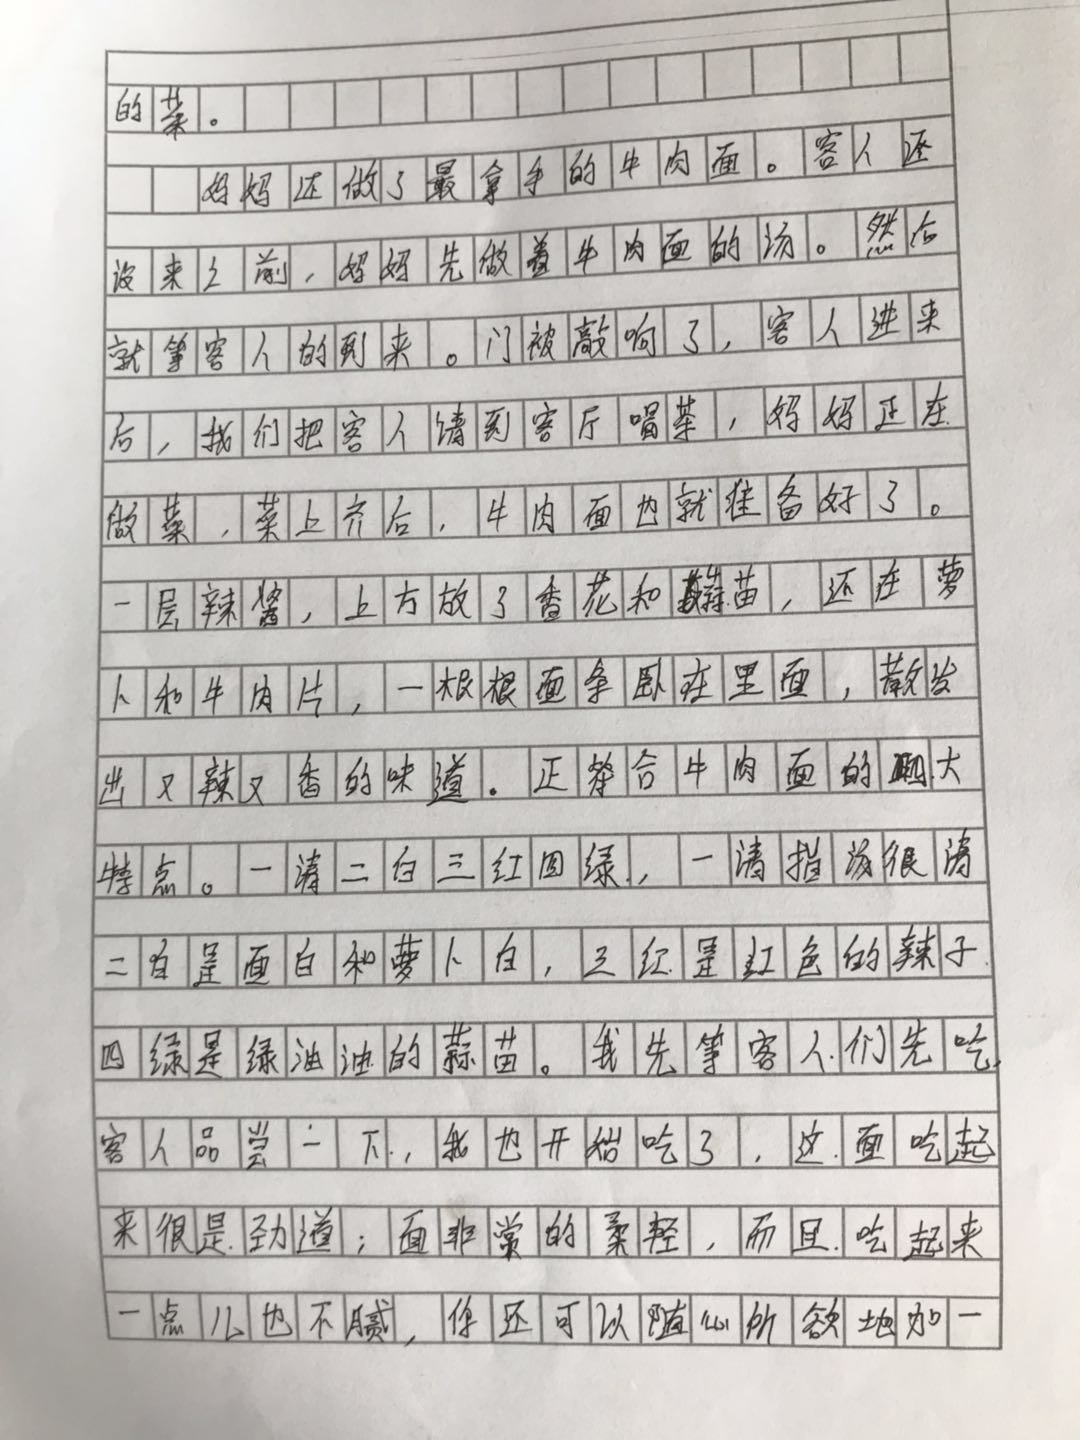 的菜。
妈妈还做了最拿手的牛肉面。客人还
没来之前，妈妈先做着牛肉面的汤。然后
就等客人的到来。门被敲响了，客人进来
后，我们把客人请到客厅喝茶，妈妈正在
做菜，菜上齐后，牛肉面也就准备好了。
一层辣酱，上方放了香花和蒜苗，还在萝
卜和牛肉片，一根根面条卧在里面，散发
出又辣又香的味道。正符合牛肉面的四大
特点。一清二白三红四绿，一清指汤很清
二白是面白和萝卜白，三红是红色的辣子
四绿是绿油油的蒜苗。我先等客人们先吃
客人品尝一下，我也开始吃了，这面吃起
来很是劲道；面非常的柔轻，而且吃起来
一点儿也不腻，你还可以随心所欲地加一